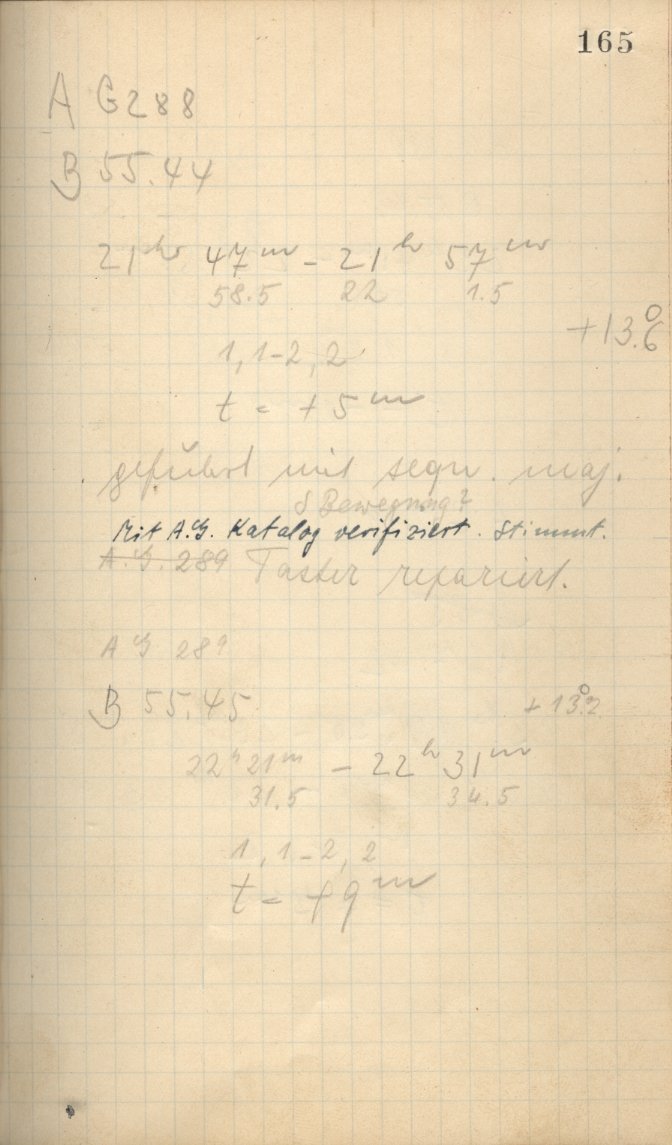 165
A G 288
B 55.44
21 hr 47 m – 21 h 57 m
58.5 22 1.5
+13.6°
1, 1–2, 2
t = +5 m
geführt mit sequ. maj.
δ Bewegung?
Mit A.G. Katalog verifiziert. Stimmt.
A.G. 289 Taster repariert.
A G 289
B 55.45 +13.2°
22 h 21 m – 22 h 31 m
31.5 34.5
1, 1–2, 2
t = +9 m